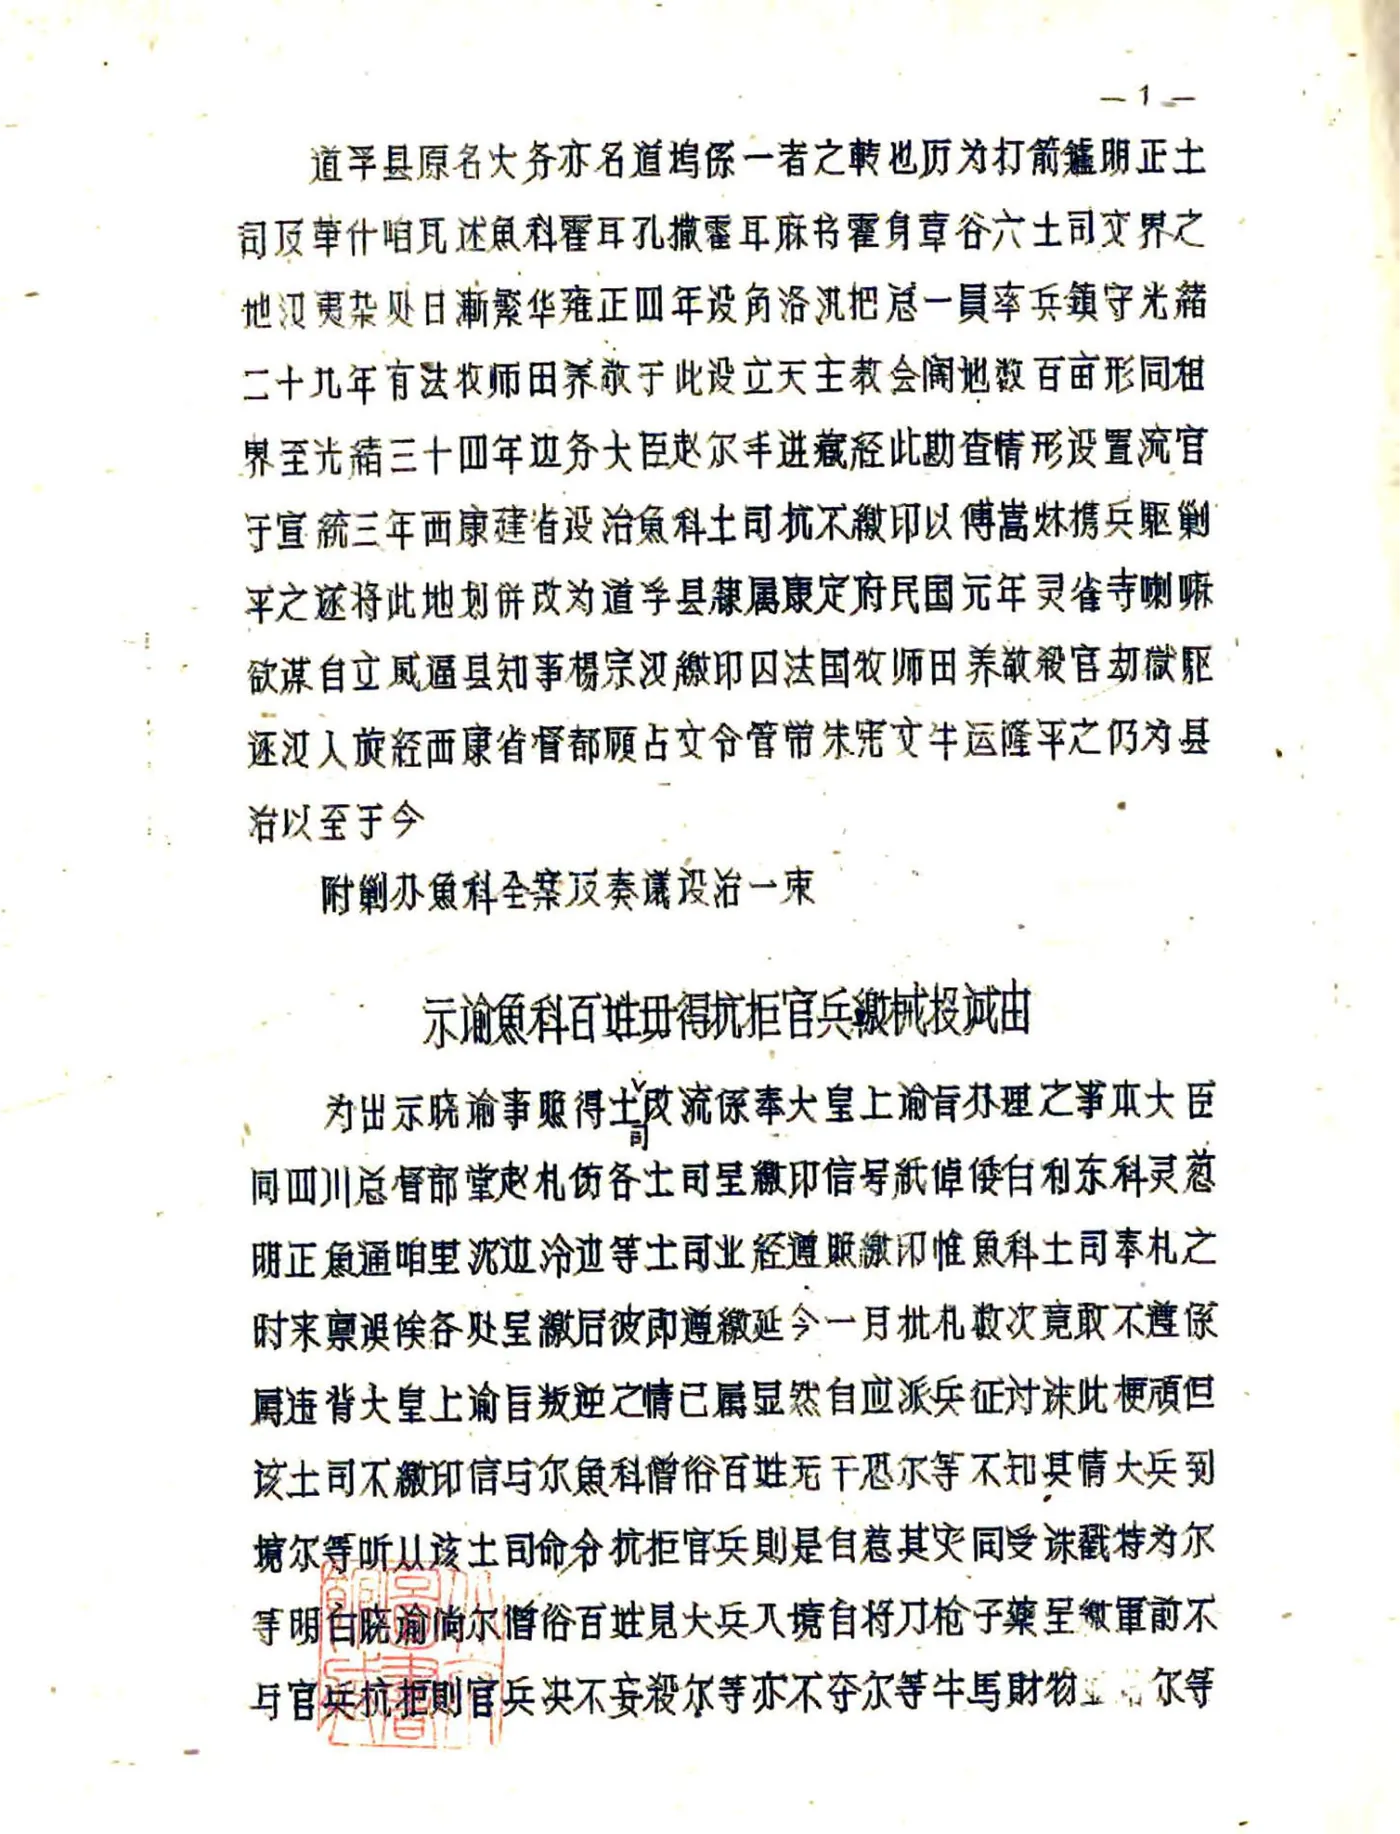 — 1 —
道孚县原名大务亦名道坞係一者之転也历为打箭鑪明正土
司及革什咱瓦述魚科霍耳孔撒霍耳麻书霍耳章谷六土司交界之
地汉夷杂处日漸繁华雍正四年设角洛汛把总一員率兵鎮守光緒
二十九年有法牧师田养敬于此设立天主教会阔地数百亩形同租
界至光緒三十四年边务大臣赵尔丰进藏経此勘查情形设置流官
于宣統三年西康建省设治魚科土司抗不繳印以傅嵩炑携兵駆剿
平之遂将此地划併改为道孚县隸属康定府民国元年灵雀寺喇嘛
欲谋自立威逼县知事楊宗汉繳印囚法国牧师田养敬殺官劫獄駆
逐汉人旋経西康省督都顾占文令管带朱宪文牛运隆平之仍为县
治以至于今
附剿办魚科全案及奏議设治一束
示谕魚科百姓毋得抗拒官兵繳械投诚由
为出示晓谕事照得土司改流係奉大皇上谕旨办理之事本大臣
同四川总督部堂赵札饬各土司呈繳印信号紙倬倭白利东科灵葱
明正魚通咱里沉边冷边等土司业経遵照繳印惟魚科土司奉札之
时来禀誤俟各处呈繳后彼即遵繳延今一月批札数次竟敢不遵係
属违背大皇上谕旨叛逆之情已属显然自应派兵征讨诛此梗頑但
该土司不繳印信与尔魚科僧俗百姓无干恐尔等不知其情大兵到
境尔等听从该土司命令抗拒官兵則是自惹其灾同受诛戳特为尔
等明白晓谕倘尔僧俗百姓見大兵入境自将刀枪子藥呈繳軍前不
与官兵抗拒則官兵决不妄殺尔等亦不夺尔等牛馬財物 尔等